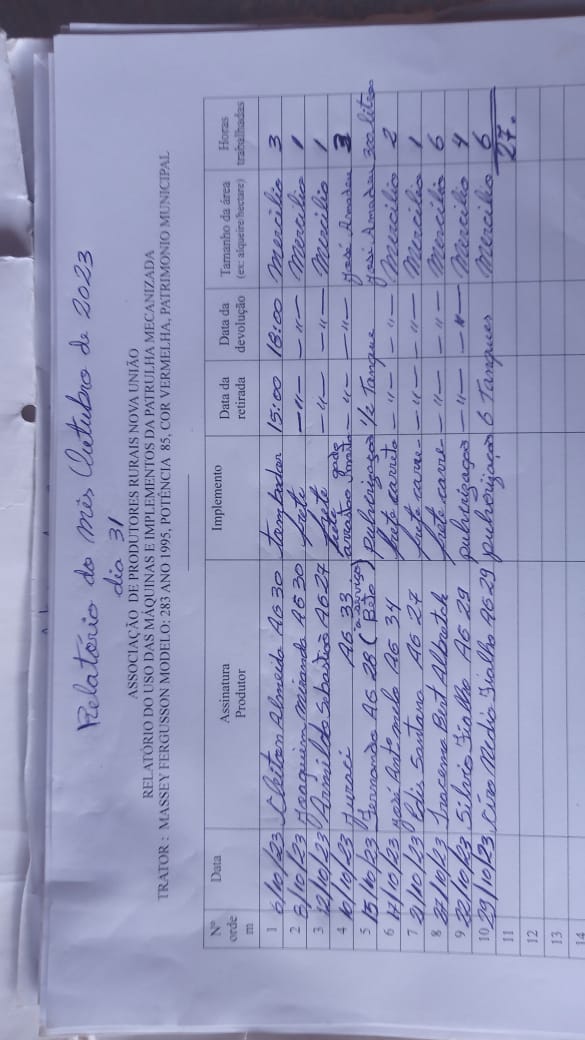 Relatório do mês Outubro de 2023
dia 31
ASSOCIAÇÃO DE PRODUTORES RURAIS NOVA UNIÃO
RELATÓRIO DO USO DAS MÁQUINAS E IMPLEMENTOS DA PATRULHA MECANIZADA
TRATOR : MASSEY FERGUSSON MODELO: 283 ANO 1995, POTÊNCIA 85, COR VERMELHA, PATRIMONIO MUNICIPAL
Nº ordem Data Assinatura Produtor Implemento Data da retirada Data da devolução Tamanho da área (ex: alqueire/hectare) Horas trabalhadas
1 6/10/23 Almeida AG 30 tombador 15:00 18:00 Mercilio 3
2 8/10/23 Joaquim Miranda AG 30 frete —"— —"— Mercilio 1
3 12/10/23 Sebastião AG 27 frete —"— —"— Mercilio 1
4 10/10/23 Juraci AG 33 frete —"— —"— José Amadeu
5 15/10/23 Fernando AG 28 (Beto) pulverização 1/2 Tanque José Amadeu 300 litros
6 17/10/23 José AG 34 frete carreto —"— —"— Mercilio 2
7 21/10/23 Edi Santana AG 27 frete carre —"— —"— Mercilio 1
8 27/10/23 Iracema frete carre —"— —"— Mercilio 6
9 22/10/23 Silvio Fialho AG 29 pulverização —"— —"— Mercilio 4
10 29/10/23 Fialho AG 29 pulverização 6 Tanques Mercilio 6
11 27.
12
13
14